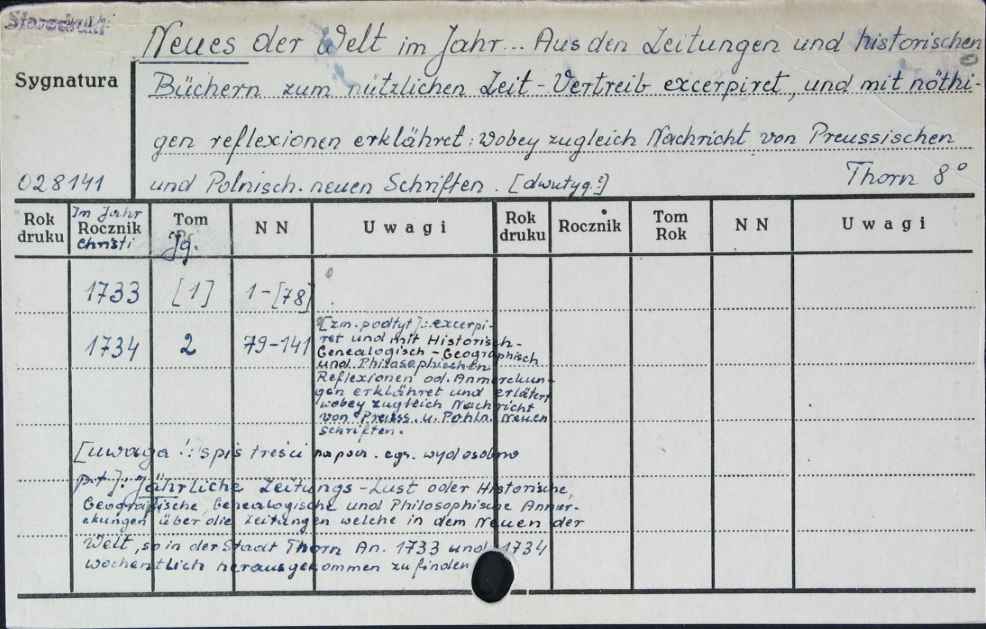 Starodruki
Neues der Welt im Jahr... Aus den Zeitungen und historischen
Sygnatura
Büchern zum nützlichen Zeit-Vertreib excerpiret, und mit nöthi-
gen reflexionen erklähret: wobey zugleich Nachricht von Preussischen
028141 und Polnisch. neuen Schriften. [dwutyg.] Thorn 8°
Rok druku Im Jahr Rocznik Christi Tom Jg. NN Uwagi Rok druku Rocznik Tom Rok NN Uwagi
1733 [1] 1-[78]
1734 2 79-141
[zm. podtyt]: excerpi-
ret und mit Historisch-
Genealogisch-Geographisch
und Philosophischen
Reflexionen od. Anmerckun-
gen erklähret und erlätert
wobey zugleich Nachricht
von Preuss. u. Pohln. Neuen
Schriften.
[uwaga: spis treści na pocz. egz. wyd osobno
p.t.]: Jährliche Zeitungs-Lust oder Historische,
Geographische, Genealogische und Philosophische Anmer-
ckungen über die Zeitungen welche in dem Neuen der
Welt, so in der Stadt Thorn An. 1733 und 1734
wochentlich herausgekommen zu finden